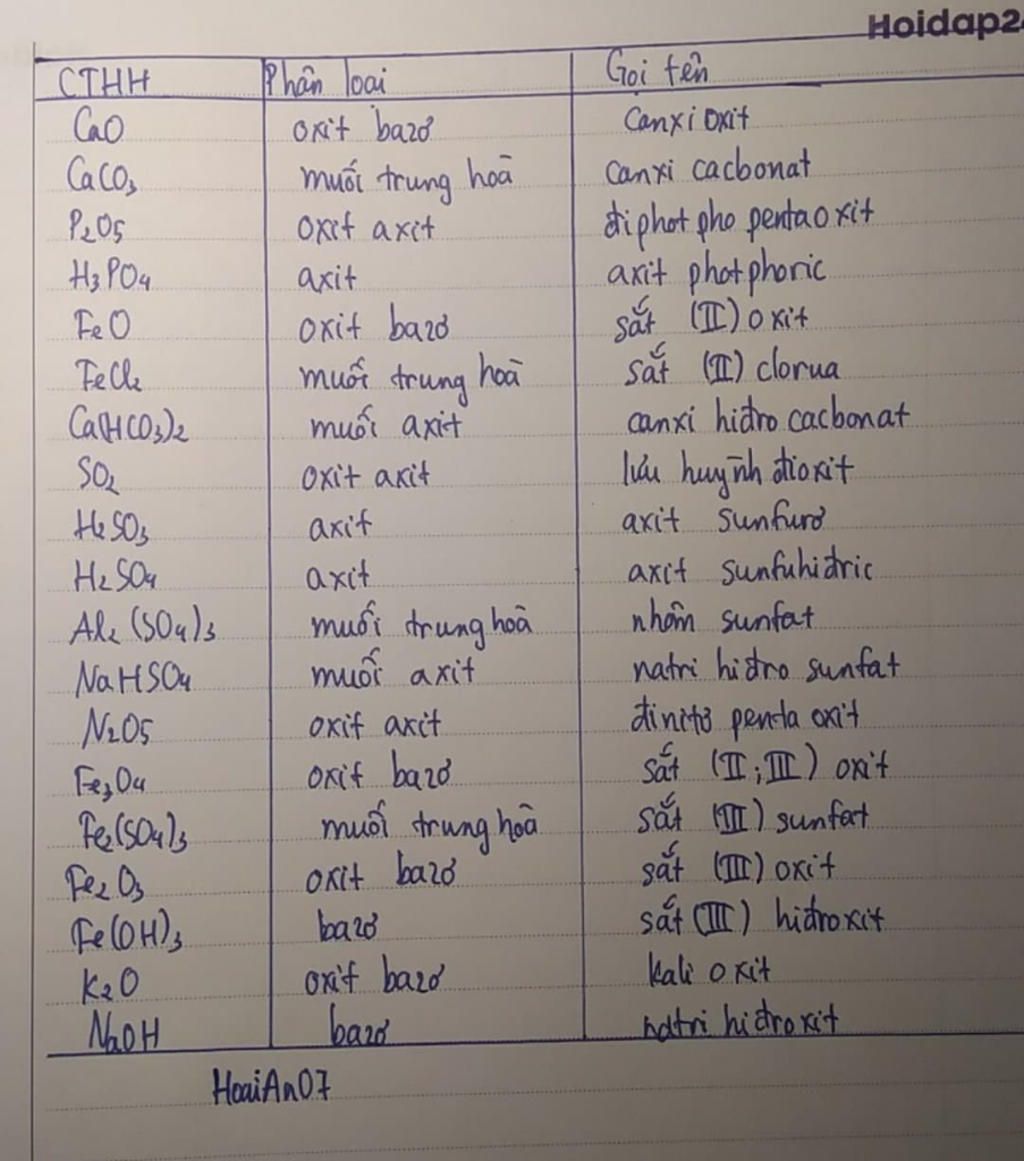 Hoidap2
CTHH Phân loại Gọi tên
CaO oxit bazơ Canxi oxit
CaCO3 muối trung hoà canxi cacbonat
P2O5 oxit axit điphotpho pentaoxit
H3PO4 axit axit photphoric
FeO oxit bazơ sắt (II) oxit
FeCl2 muối trung hoà sắt (II) clorua
Ca(HCO3)2 muối axit canxi hiđro cacbonat
SO2 oxit axit lưu huỳnh đioxit
H2SO3 axit axit sunfurơ
H2SO4 axit axit sunfuhiđric
Al2(SO4)3 muối trung hoà nhôm sunfat
NaHSO4 muối axit natri hiđro sunfat
N2O5 oxit axit đinitơ penta oxit
Fe3O4 oxit bazơ sắt (II; III) oxit
Fe2(SO4)3 muối trung hoà sắt (III) sunfat
Fe2O3 oxit bazơ sắt (III) oxit
Fe(OH)3 bazơ sắt (III) hiđroxit
K2O oxit bazơ kali oxit
NaOH bazơ natri hiđroxit
HoaiAn07